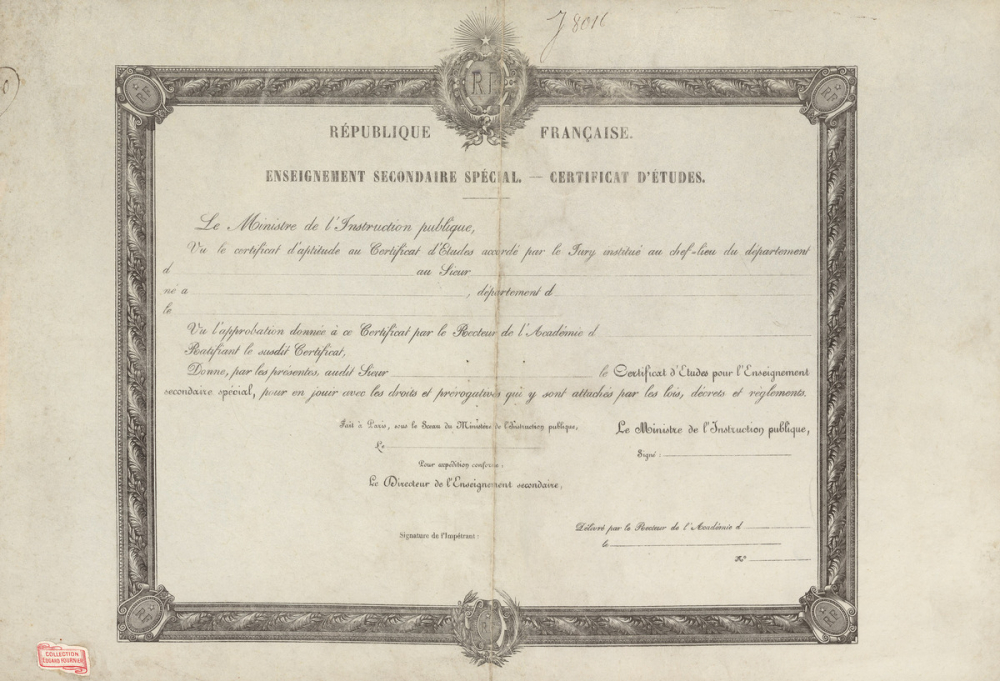 J 8016
RF
RF
RF
RÉPUBLIQUE FRANÇAISE.
ENSEIGNEMENT SECONDAIRE SPÉCIAL. — CERTIFICAT D'ÉTUDES.
Le Ministre de l'Instruction publique,
Vu le certificat d'aptitude au Certificat d'Etudes accordé par le Jury institué au chef-lieu du département
d au Sieur
né à , département d
le
Vu l'approbation donnée à ce Certificat par le Recteur de l'Académie d
Ratifiant le susdit Certificat,
Donne, par les présentes, audit Sieur le Certificat d'Etudes pour l'Enseignement
secondaire spécial, pour en jouir avec les droits et prérogatives qui y sont attachés par les lois, décrets et règlements.
Fait à Paris, sous le Sceau du Ministère de l'Instruction publique,
Le Ministre de l'Instruction publique,
Le
Signé :
Pour expédition conforme :
Le Directeur de l'Enseignement secondaire,
Délivré par le Recteur de l'Académie d
Signature de l'Impétrant :
le
N°
RF
RF
COLLECTION
EDGARD FOURNIER